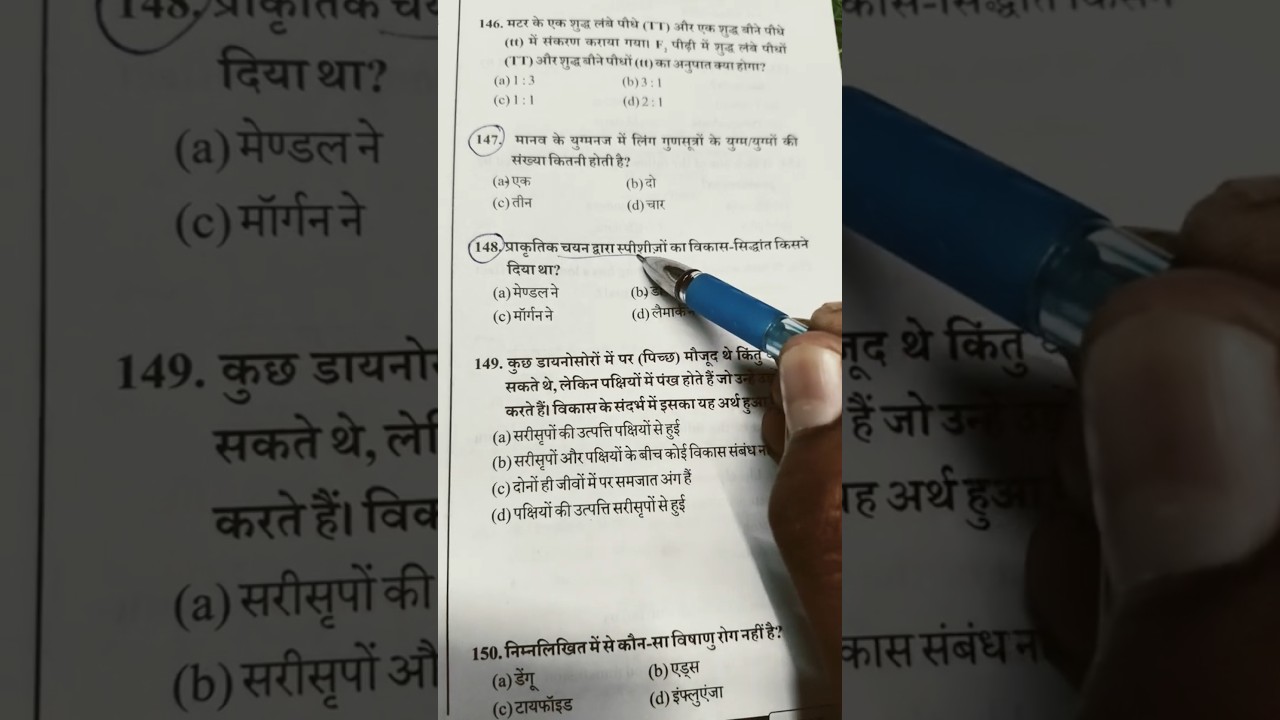 146. मटर के एक शुद्ध लंबे पौधे (TT) और एक शुद्ध बौने पौधे
(tt) में संकरण कराया गया। F₂ पीढ़ी में शुद्ध लंबे पौधों
(TT) और शुद्ध बौने पौधों (tt) का अनुपात क्या होगा?
(a) 1 : 3 (b) 3 : 1
(c) 1 : 1 (d) 2 : 1
147. मानव के युग्मनज में लिंग गुणसूत्रों के युग्म/युग्मों की
संख्या कितनी होती है?
(a) एक (b) दो
(c) तीन (d) चार
148. प्राकृतिक चयन द्वारा स्पीशीज़ों का विकास-सिद्धांत किसने
दिया था?
(a) मेण्डल ने (b)
(c) मॉर्गन ने (d)
149. कुछ डायनोसोरों में पर (पिच्छ) मौजूद थे किंतु
सकते थे, लेकिन पक्षियों में पंख होते हैं जो
करते हैं। विकास के संदर्भ में इसका यह अर्थ हुआ
(a) सरीसृपों की उत्पत्ति पक्षियों से हुई
(b) सरीसृपों और पक्षियों के बीच कोई विकास संबंध
(c) दोनों ही जीवों में पर समजात अंग हैं
(d) पक्षियों की उत्पत्ति सरीसृपों से हुई
150. निम्नलिखित में से कौन-सा विषाणु रोग नहीं है?
(a) डेंगू (b) एड्स
(c) टायफॉइड (d) इंफ्लुएंजा